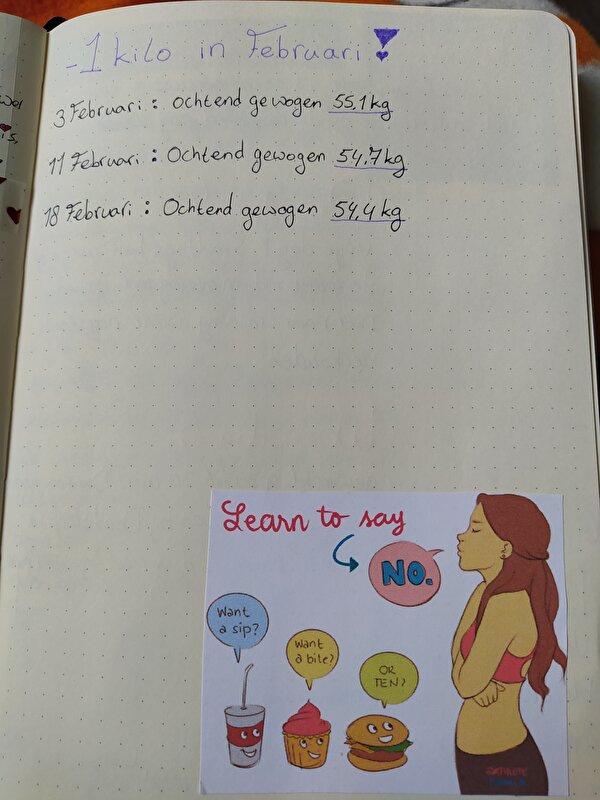 -1 kilo in Februari!
3 Februari : Ochtend gewogen 55,1 kg
11 Februari : Ochtend gewogen 54,7 kg
18 Februari : Ochtend gewogen 54,4 kg
Learn to say
NO.
Want
a sip?
Want
a bite?
OR
TEN?